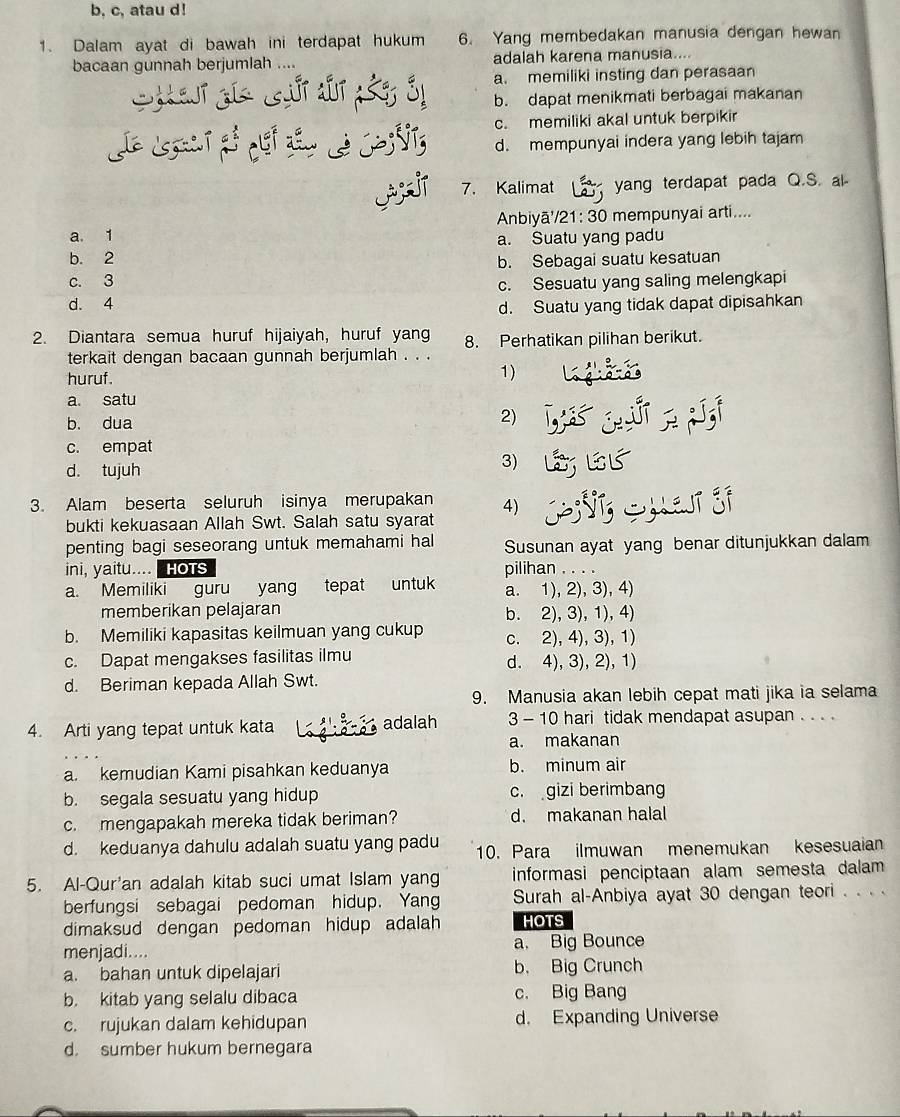 b, c, atau d!
1. Dalam ayat di bawah ini terdapat hukum
bacaan gunnah berjumlah ....
إِنَّ رَبَّكُمُ اللّٰهُ الَّذِيْ خَلَقَ السَّمٰوٰتِ
وَالْاَرْضَ فِيْ سِتَّةِ اَيَّامٍ ثُمَّ اسْتَوٰى عَلَى
الْعَرْشِ
a. 1
b. 2
c. 3
d. 4
2. Diantara semua huruf hijaiyah, huruf yang
terkait dengan bacaan gunnah berjumlah . . .
huruf.
a. satu
b. dua
c. empat
d. tujuh
3. Alam beserta seluruh isinya merupakan
bukti kekuasaan Allah Swt. Salah satu syarat
penting bagi seseorang untuk memahami hal
ini, yaitu.... HOTS
a. Memiliki guru yang tepat untuk
memberikan pelajaran
b. Memiliki kapasitas keilmuan yang cukup
c. Dapat mengakses fasilitas ilmu
d. Beriman kepada Allah Swt.
4. Arti yang tepat untuk kata فَفَتَقْنٰهُمَا adalah
. . . .
a. kemudian Kami pisahkan keduanya
b. segala sesuatu yang hidup
c. mengapakah mereka tidak beriman?
d. keduanya dahulu adalah suatu yang padu
5. Al-Qur'an adalah kitab suci umat Islam yang
berfungsi sebagai pedoman hidup. Yang
dimaksud dengan pedoman hidup adalah
menjadi....
a. bahan untuk dipelajari
b. kitab yang selalu dibaca
c. rujukan dalam kehidupan
d. sumber hukum bernegara
6. Yang membedakan manusia dengan hewan
adalah karena manusia....
a. memiliki insting dan perasaan
b. dapat menikmati berbagai makanan
c. memiliki akal untuk berpikir
d. mempunyai indera yang lebih tajam
7. Kalimat رَتْقًا yang terdapat pada Q.S. al-
Anbiyā'/21: 30 mempunyai arti....
a. Suatu yang padu
b. Sebagai suatu kesatuan
c. Sesuatu yang saling melengkapi
d. Suatu yang tidak dapat dipisahkan
8. Perhatikan pilihan berikut.
1) فَفَتَقْنٰهُمَا
2) اَوَلَمْ يَرَ الَّذِيْنَ كَفَرُوْٓا
3) كَانَتَا رَتْقًا
4) اَنَّ السَّمٰوٰتِ وَالْاَرْضَ
Susunan ayat yang benar ditunjukkan dalam
pilihan . . . .
a. 1), 2), 3), 4)
b. 2), 3), 1), 4)
c. 2), 4), 3), 1)
d. 4), 3), 2), 1)
9. Manusia akan lebih cepat mati jika ia selama
3 – 10 hari tidak mendapat asupan . . . .
a. makanan
b. minum air
c. gizi berimbang
d. makanan halal
10. Para ilmuwan menemukan kesesuaian
informasi penciptaan alam semesta dalam
Surah al-Anbiya ayat 30 dengan teori . . . .
HOTS
a. Big Bounce
b. Big Crunch
c. Big Bang
d. Expanding Universe